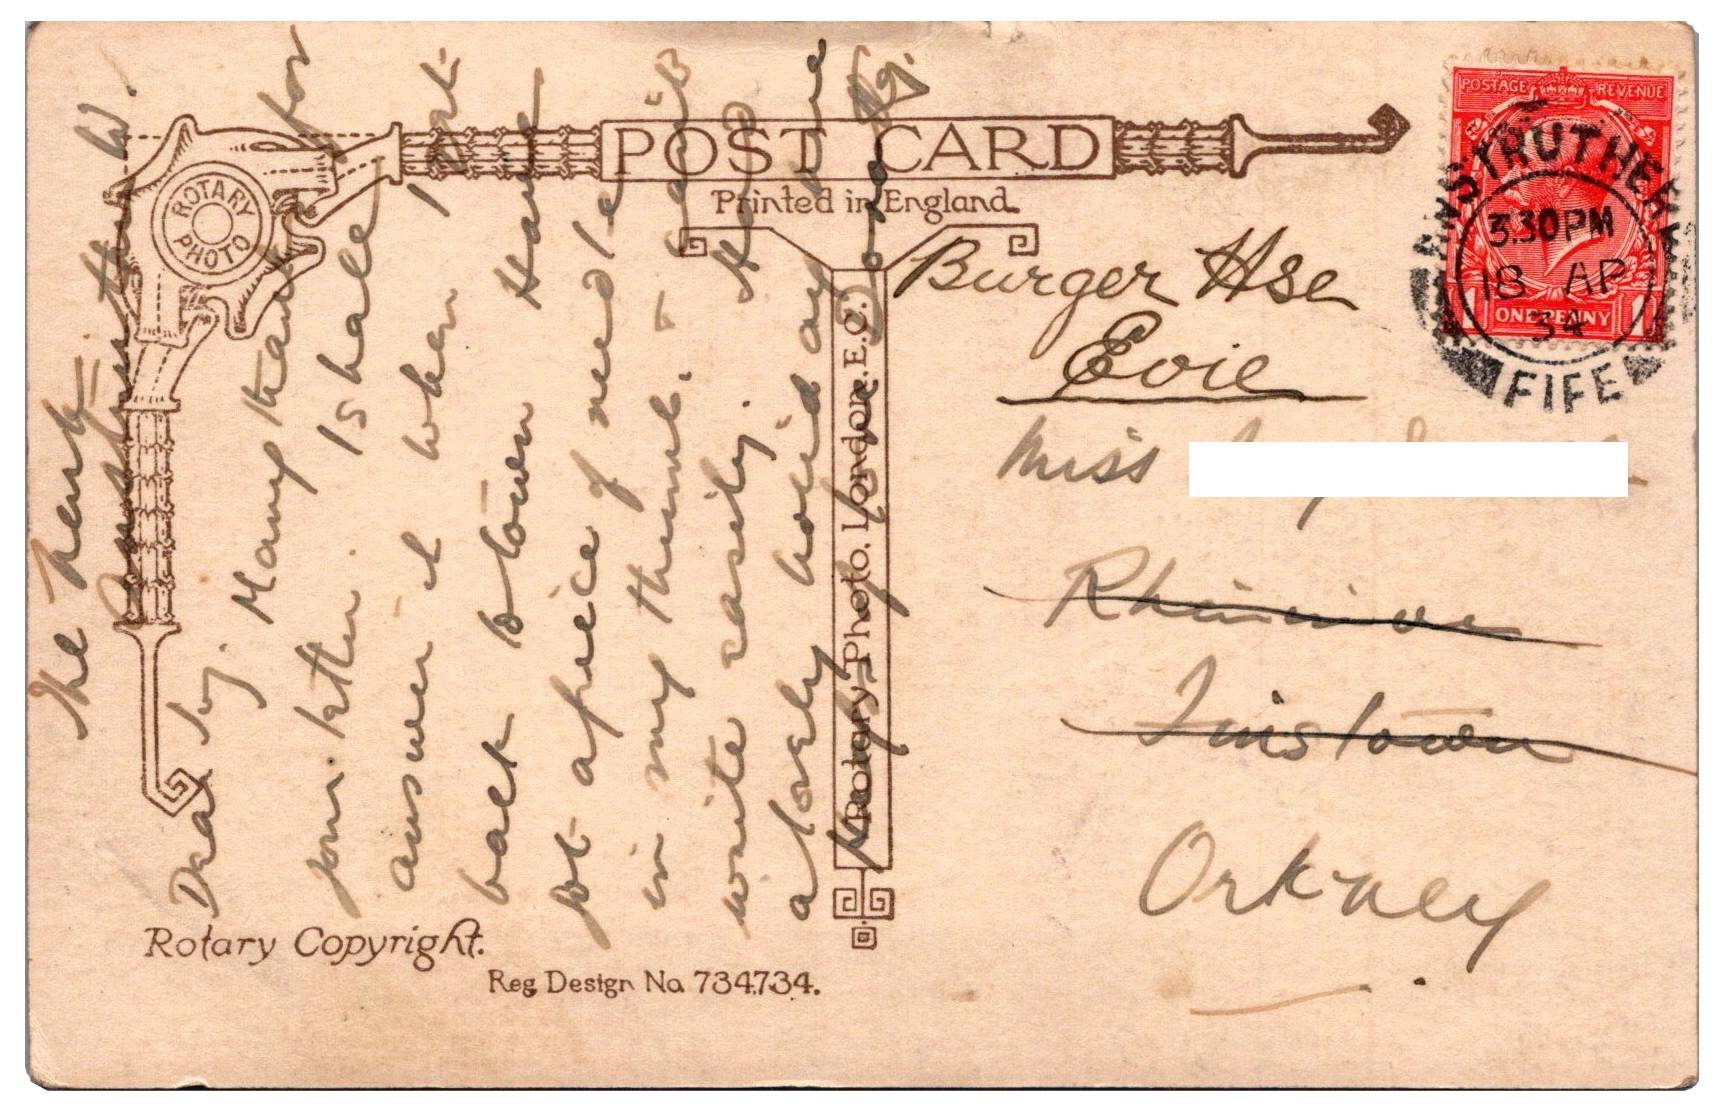 POST CARD
Printed in England.
ROTARY
PHOTO
Rotary Photo, London, E.C.
Rotary Copyright.
Reg. Design No. 734734.
POSTAGE REVENUE
ONE PENNY
ANSTRUTHER
3.30PM
18 AP
34
FIFE
The
Anstruther W.
Dear Ivy. Many thanks for
your letter. I shall
answer it when I get
back to town. Have
got a piece of needle
in my thumb. -
write easily.
a lovely holiday
Burger Hse
Evie
Miss
Finstown
Orkney